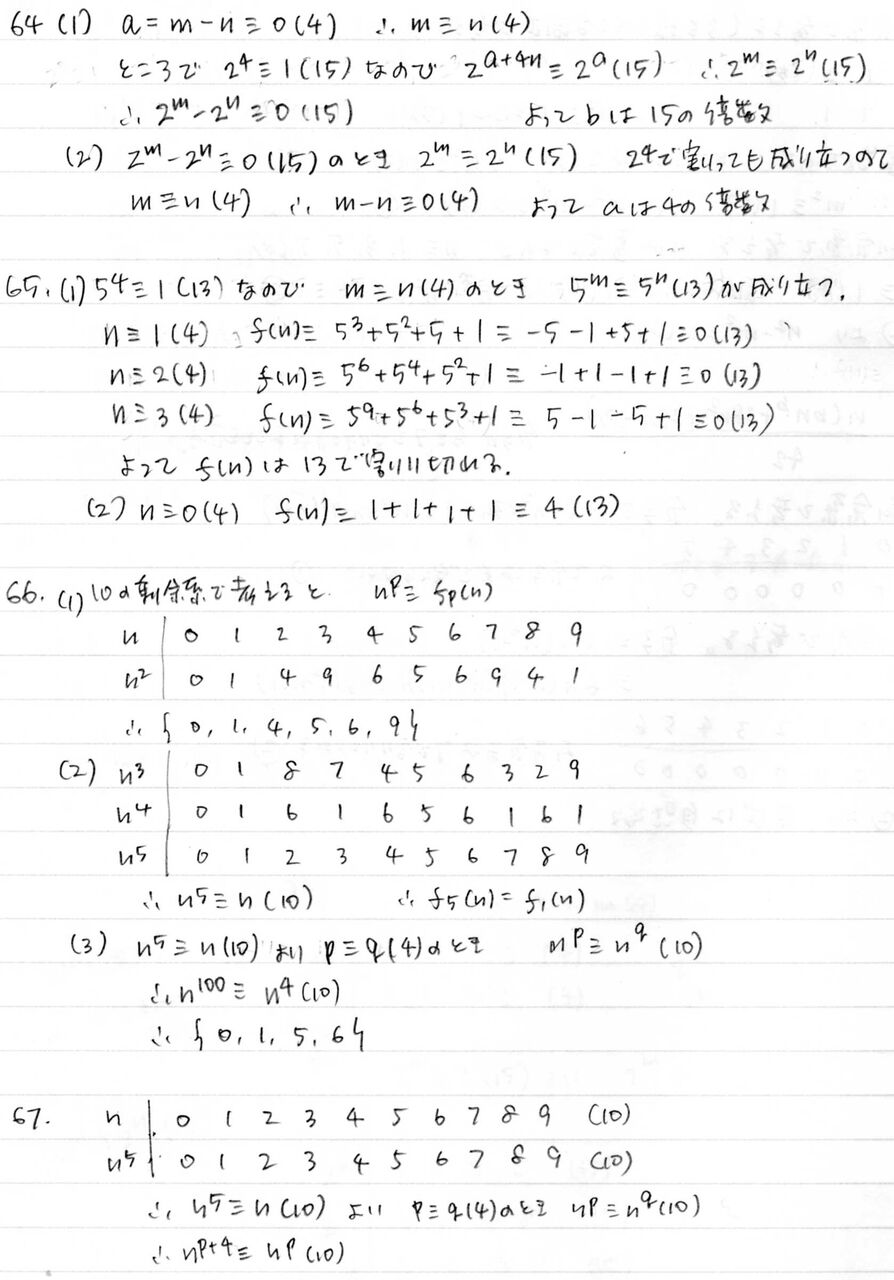 64 (1) a = m - n ≡ 0 (4) ∴ m ≡ n (4)
ところで 2^4 ≡ 1 (15) なので 2^{a+4n} ≡ 2^a (15) ∴ 2^m ≡ 2^n (15)
∴ 2^m - 2^n ≡ 0 (15) よって b は 15の倍数
(2) 2^m - 2^n ≡ 0 (15) のとき 2^m ≡ 2^n (15) 2^4で割っても成り立つので
m ≡ n (4) ∴ m - n ≡ 0 (4) よって a は 4の倍数
65. (1) 5^4 ≡ 1 (13) なので m ≡ n (4) のとき 5^m ≡ 5^n (13) が成り立つ.
n ≡ 1 (4) f(n) ≡ 5^3 + 5^2 + 5 + 1 ≡ -5 - 1 + 5 + 1 ≡ 0 (13)
n ≡ 2 (4) f(n) ≡ 5^6 + 5^4 + 5^2 + 1 ≡ -1 + 1 - 1 + 1 ≡ 0 (13)
n ≡ 3 (4) f(n) ≡ 5^9 + 5^6 + 5^3 + 1 ≡ 5 - 1 - 5 + 1 ≡ 0 (13)
よって f(n) は 13で割り切れる.
(2) n ≡ 0 (4) f(n) ≡ 1 + 1 + 1 + 1 ≡ 4 (13)
66. (1) 10の剰余系で考えると n^p ≡ f_p(n)
n 0 1 2 3 4 5 6 7 8 9
n^2 0 1 4 9 6 5 6 9 4 1
∴ { 0, 1, 4, 5, 6, 9 }
(2) n^3 0 1 8 7 4 5 6 3 2 9
n^4 0 1 6 1 6 5 6 1 6 1
n^5 0 1 2 3 4 5 6 7 8 9
∴ n^5 ≡ n (10) ∴ f_5(n) = f_1(n)
(3) n^5 ≡ n (10) より p ≡ q (4) のとき n^p ≡ n^q (10)
∴ n^100 ≡ n^4 (10)
∴ { 0, 1, 5, 6 }
67. n 0 1 2 3 4 5 6 7 8 9 (10)
n^5 0 1 2 3 4 5 6 7 8 9 (10)
∴ n^5 ≡ n (10) より p ≡ q (4) のとき n^p ≡ n^q (10)
∴ n^{p+4} ≡ n^p (10)